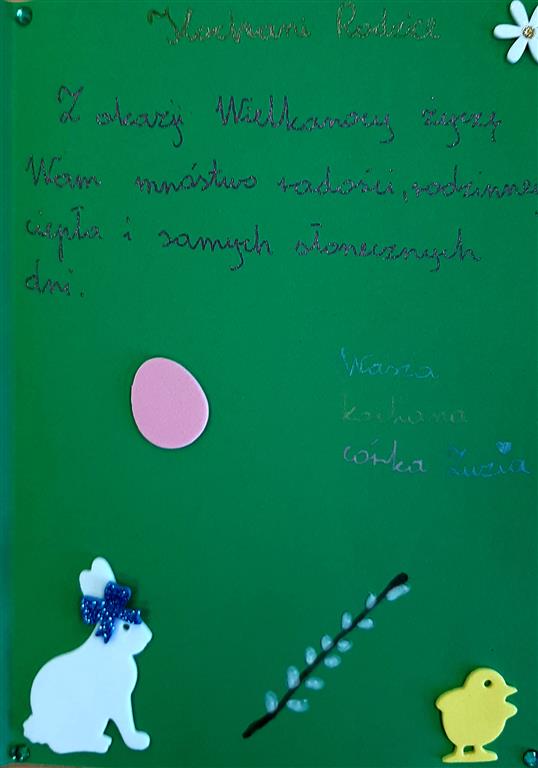 Kochani Rodzice
Z okazji Wielkanocy życzę
Wam mnóstwo radości, rodzinnego
ciepła i samych słonecznych
dni.
Wasza
kochana
córka Zuzia